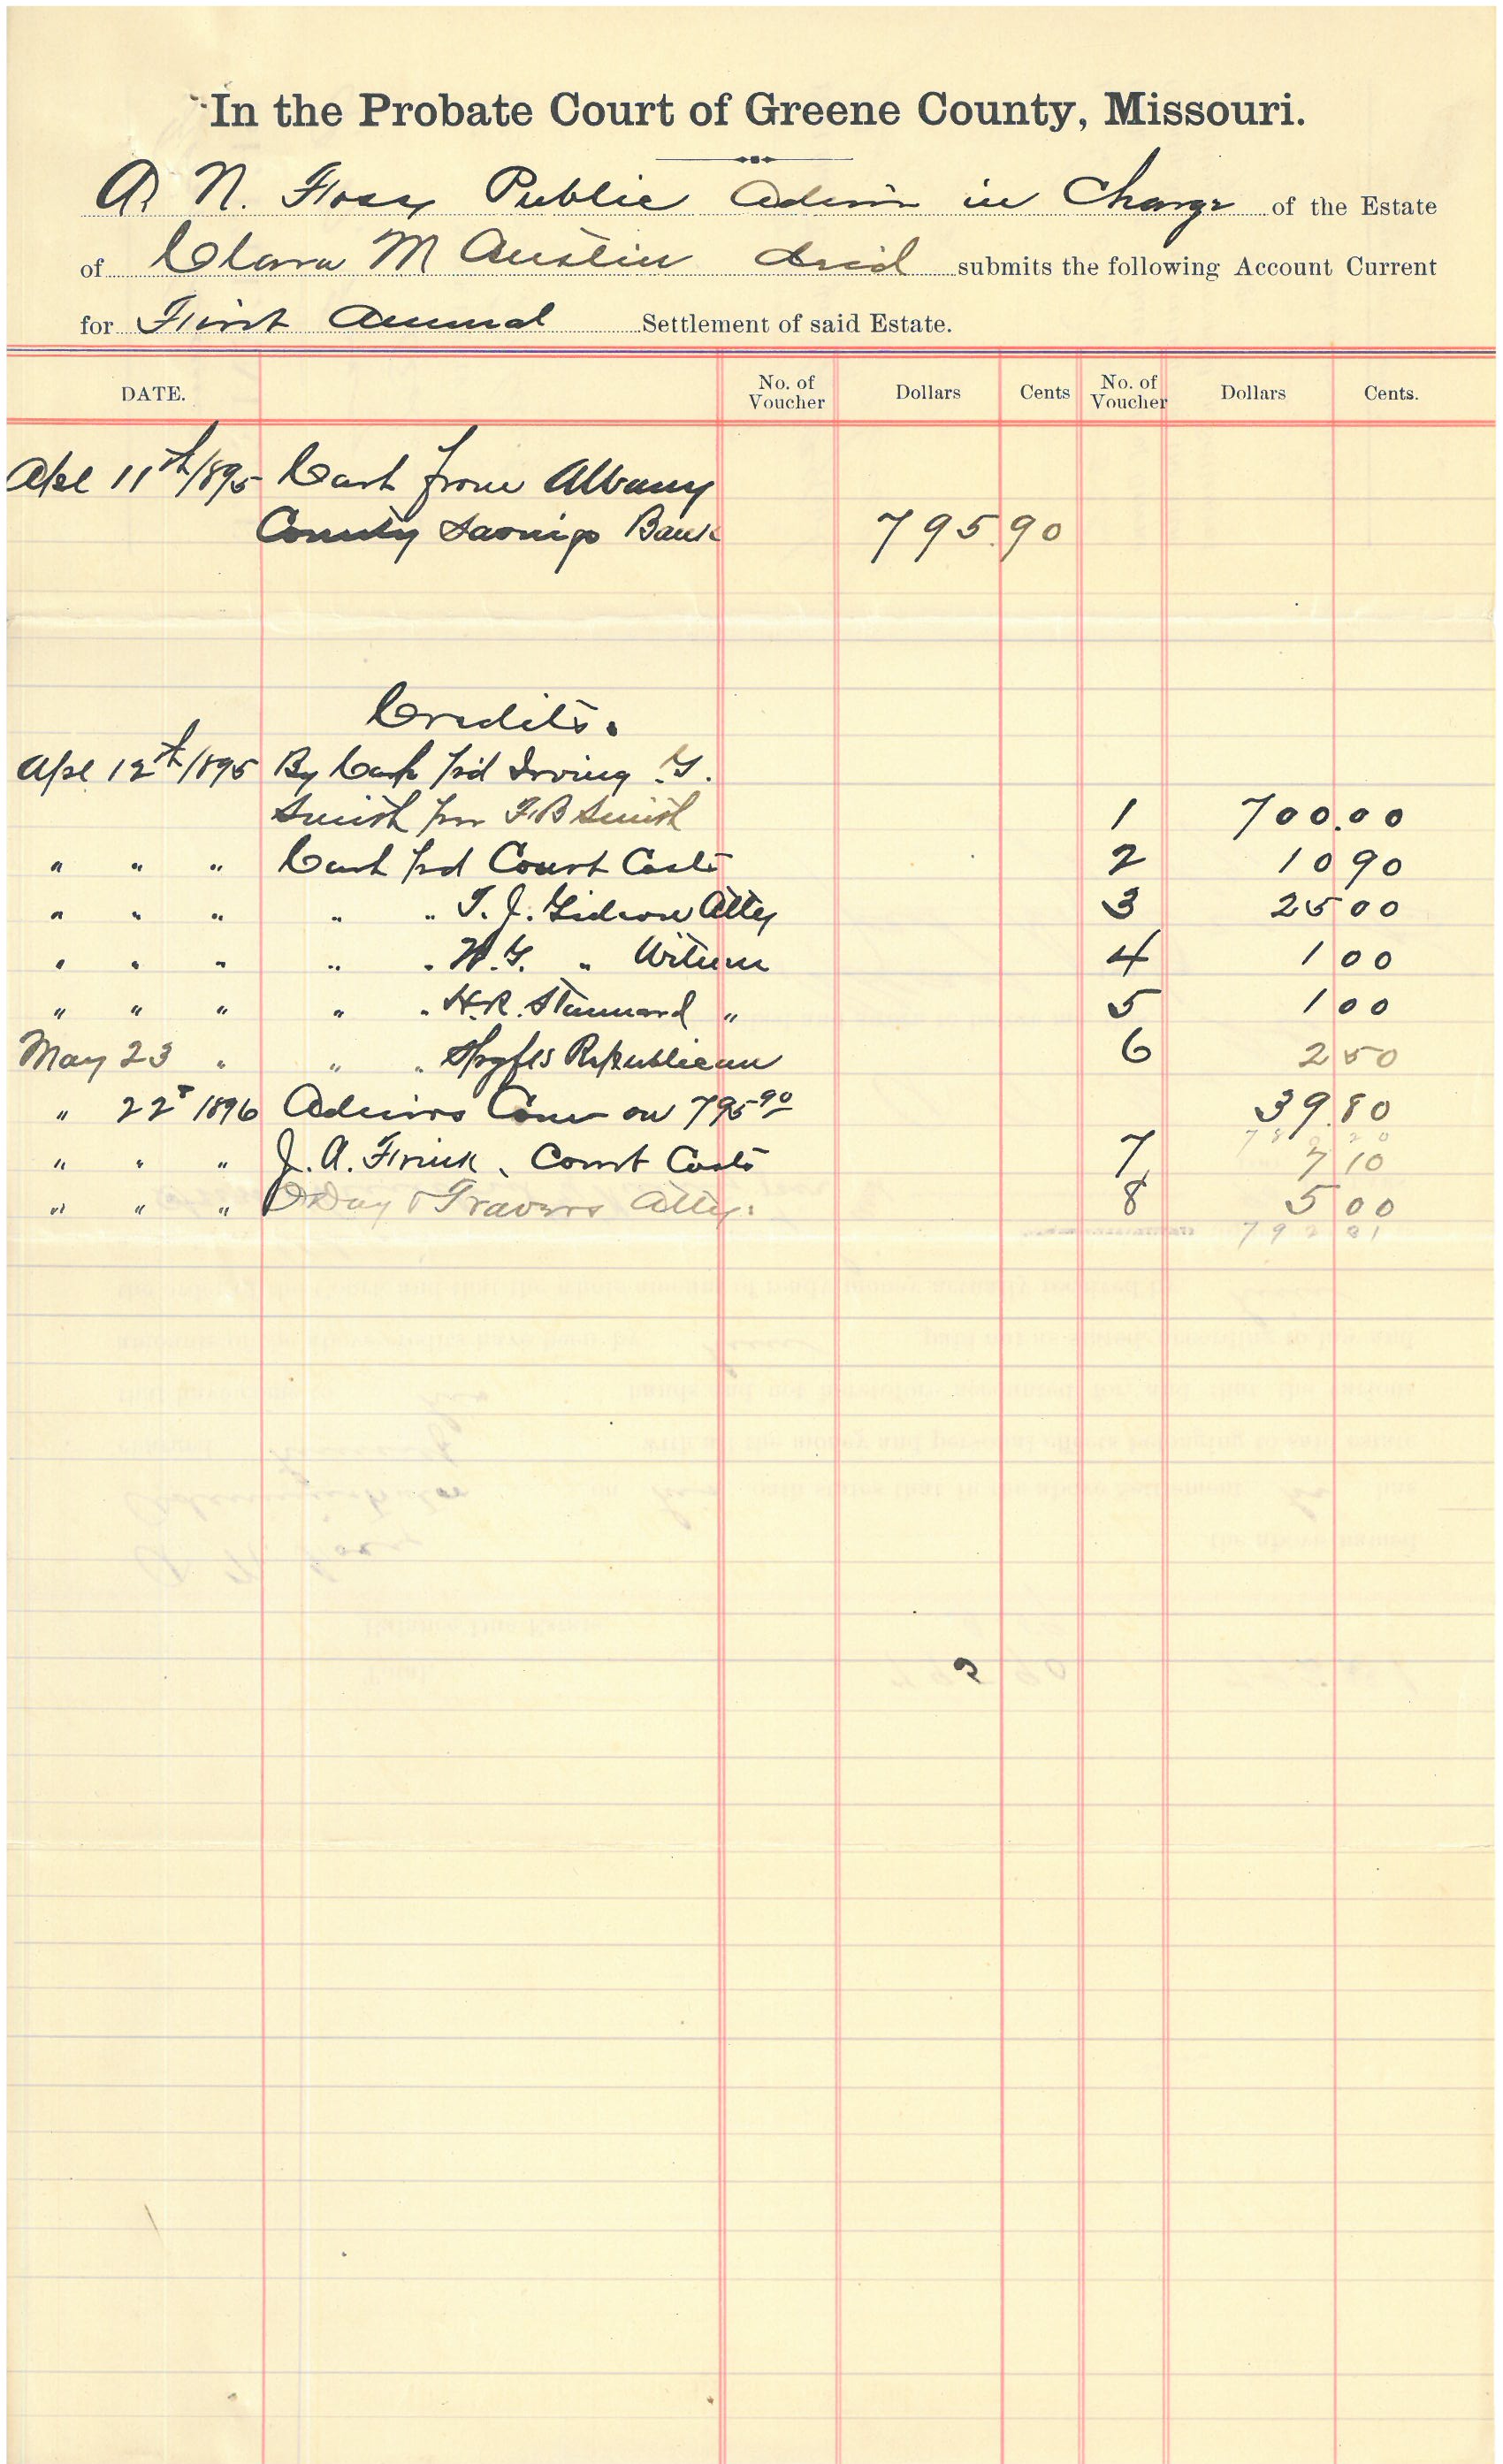 In the Probate Court of Greene County, Missouri.
A. N. Public Admin in Charge of the Estate
of Clara M Austin decd submits the following Account Current
for First Annual Settlement of said Estate.
DATE. No. of Voucher Dollars Cents No. of Voucher Dollars Cents.
Apl 11th/895 Cash from Albany
County Savings Bank 795.90
Credits.
Apl 12th/895 By Cash pd Irving G.
Smith per F.B Smith 1 700.00
" " " Cash pd Court Costs 2 10 90
" " " " " T. J. Gideon Atty 3 25 00
" " " " " W. G. " Witness 4 1 00
" " " " " H. R. Stannard " 5 1 00
May 23 " " " Spgfld Republican 6 2 50
" 22 1896 Admrs Com on 795 90 39.80
" " " J. A. Frink, Court Costs 7 7 10
" " " O'Day & Travers Atty. 8 5 00